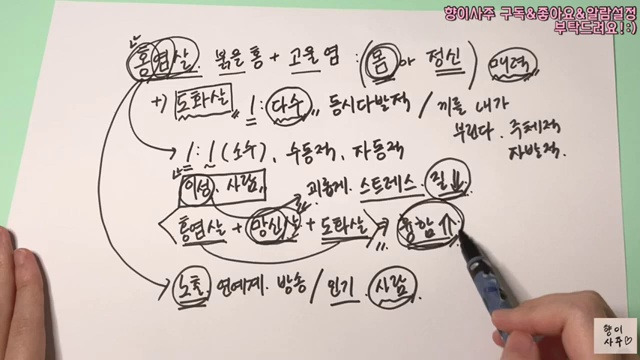 향이사주 구독&좋아요&알람설정
부탁드려요!:)
홍염살. 붉을 홍 + 고울 염 : (몸 아 정신) 매력
+) 도화살 1: 다수 〃 동시다발적 / 끼를 내가
부린다. 주체적
자발적.
1:1 (소수), 수동적, 자동적
이성, 사람, 괴롭게. 스트레스. 질↓↓
<홍염살 + 망신살 + 도화살> → 흉함 ⇑
노출 연예계. 방송 / 인기. 사람.
향이
사주♡